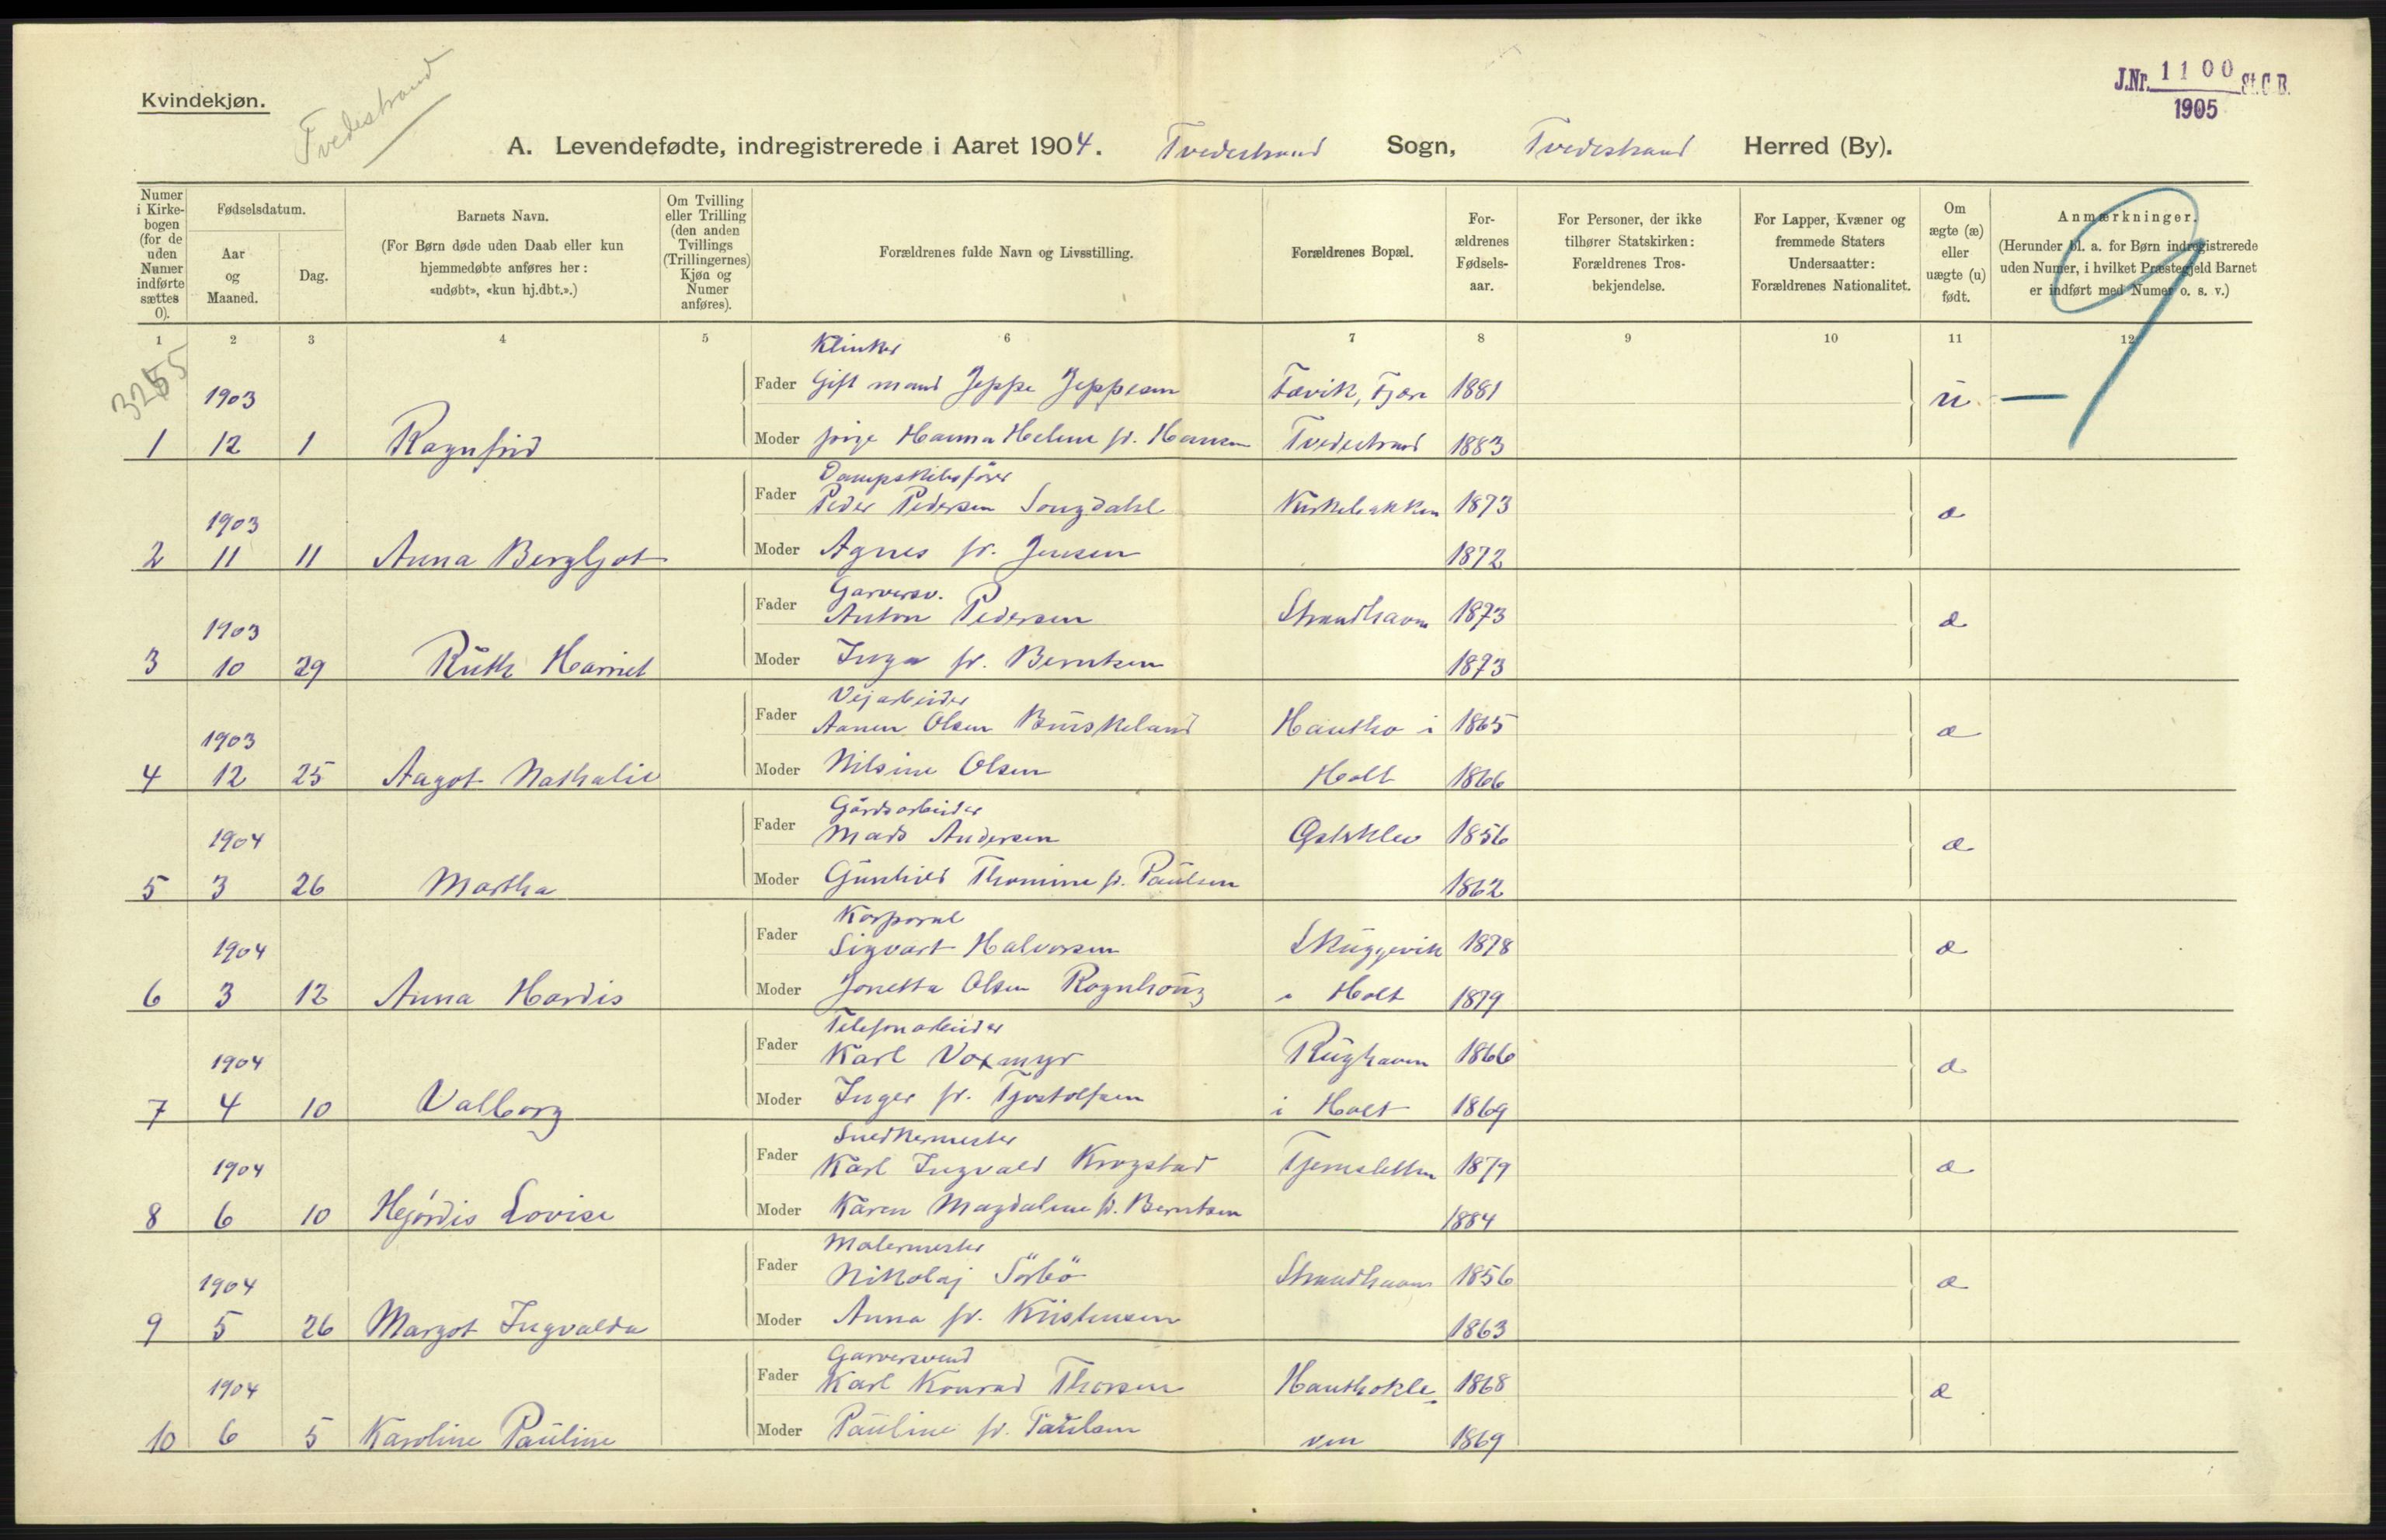 Kvindekjøn.
Tvedestrand
J.Nr. 1100 St.C.B.
1905
A. Levendefødte, indregistrerede i Aaret 1904. Tvedestrand Sogn, Tvedestrand Herred (By).
Numer i Kirkebogen (for de uden Numer indførte sættes 0).
Fødselsdatum.
Aar og Maaned.
Dag.
Barnets Navn.
(For Børn døde uden Daab eller kun hjemmedøbte anføres her: «udøbt», «kun hj.dbt.».)
Om Tvilling eller Trilling (den anden Tvillings (Trillingernes) Kjøn og Numer anføres).
Forældrenes fulde Navn og Livsstilling.
Forældrenes Bopæl.
Forældrenes Fødselsaar.
For Personer, der ikke tilhører Statskirken: Forældrenes Trosbekjendelse.
For Lapper, Kvæner og fremmede Staters Undersaatter: Forældrenes Nationalitet.
Om ægte (æ) eller uægte (u) født.
Anmærkninger.
(Herunder bl. a. for Børn indregistrerede uden Numer, i hvilket Præstegjeld Barnet er indført med Numer o. s. v.)
1 2 3 4 5 6 7 8 9 10 11 12
Klinker
1903 Fader Gift mand Jeppe Jeppesen Fævik, Fjære 1881 u —
1 12 1 Ragnfrid Moder pige Hanna Helene f. Hansen Tvedestrand 1883
Dampskibsfører
1903 Fader Peder Pedersen Songdahl Kirkebakken 1873 æ
2 11 11 Anna Bergljot Moder Agnes f. Jensen 1872
Garversv.
1903 Fader Anton Pedersen Strandhavn 1873 æ
3 10 29 Ruth Harriet Moder Inga f. Berntsen 1873
Vejarbeider
1903 Fader Aanen Olsen Buskeland Hautho i 1865 æ
4 12 25 Aagot Nathalie Moder Nilsine Olsen Holt 1866
Gårdsarbeider
1904 Fader Mads Andersen 1856 æ
5 3 26 Martha Moder Gunhild Thomine f. Paulsen 1862
Korporal
1904 Fader Sigvart Halvorsen Skuggevik 1878 æ
6 3 12 Anna Hardis Moder Jonetta Olsen i Holt 1879
Telefonarbeider
1904 Fader Karl Voxmyr Rughaven 1866 æ
7 4 10 Valborg Moder Inger f. Tjostolfsen i Holt 1869
Snedkermester
1904 Fader Karl Ingvald Krogstad Tjernsletten 1879 æ
8 6 10 Hejørdis Lovise Moder Karen Magdalene f. Berntsen 1884
Malermester
1904 Fader Nikolaj Sörbö Strandhavn 1856 æ
9 5 26 Margot Ingvalda Moder Anna f. Kristensen 1863
Garversvend
1904 Fader Karl Konrad Thorsen Hauthokle- 1868 æ
10 6 5 Karoline Pauline Moder Pauline f. Paulsen ven 1869